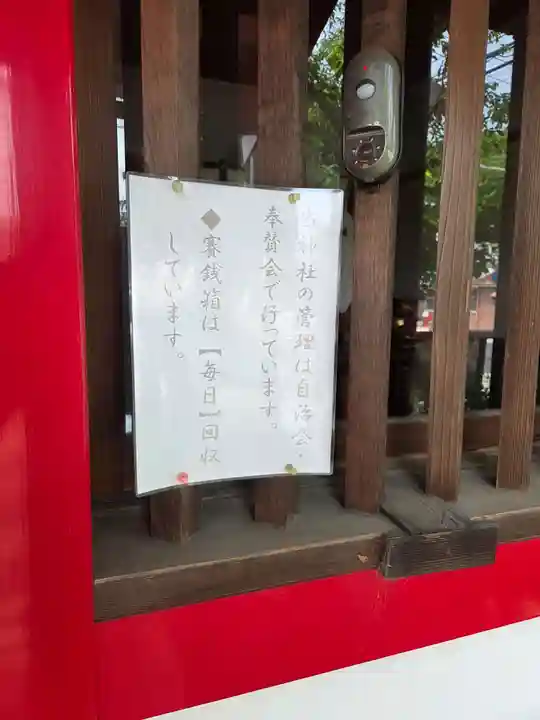 当神社の管理は自治会・
奉賛会で行っています。
◆賽銭箱は【毎日】回収
しています。